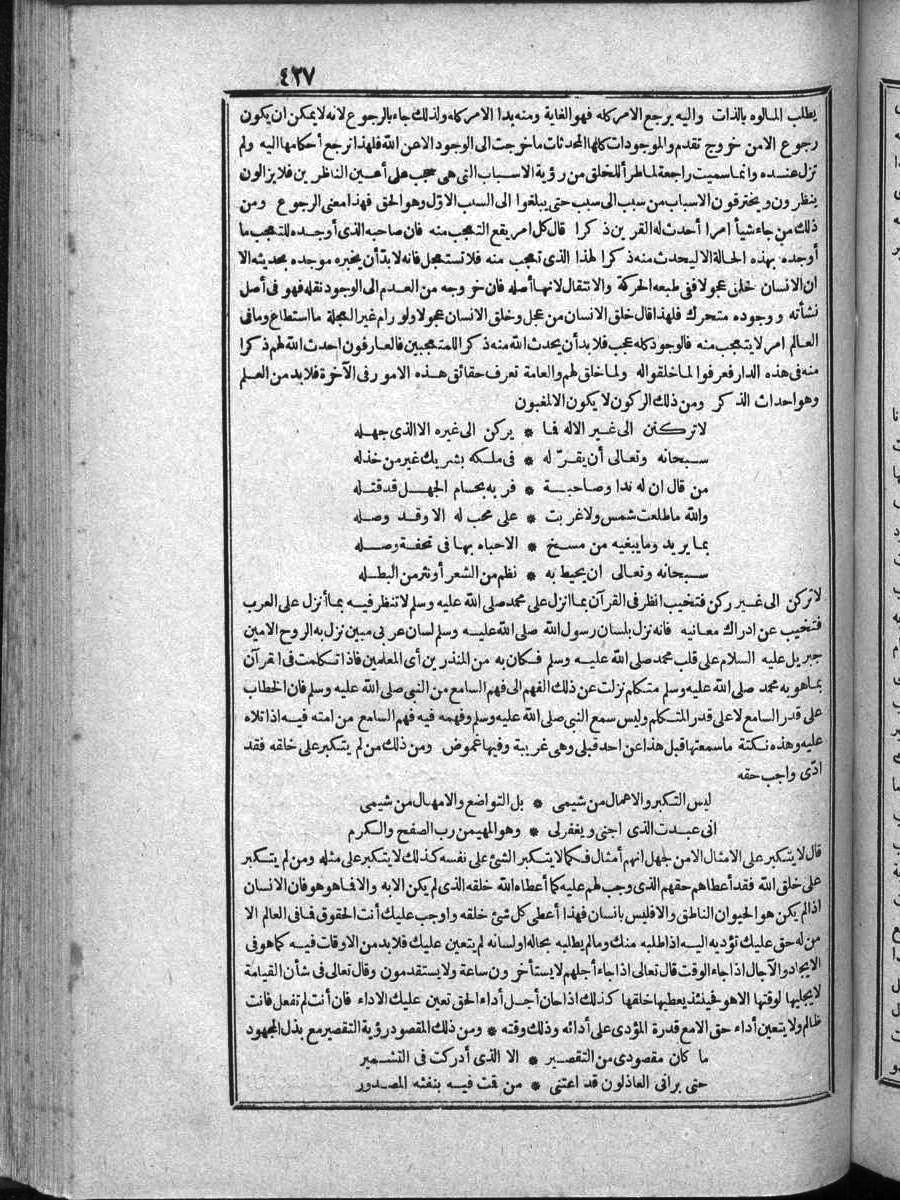 ٤٣٧
يطلب المالوه بالذات واليه يرجع الامر كله فهو الغاية ومنه بدا الامر كله ولذلك جاء بالرجوع لانه لا يمكن ان يكون
رجوع الا من خروج تقدم والموجودات كلها المحدثات ما خرجت الى الوجود الا عن الله فلهذا ترجع أحكامها اليه ولم
تزل عنده وانما سميت راجعة لما طرأ للخلق من رؤية الاسباب التى هى حجب على أعين الناظرين فلا يزالون
ينظرون ويخترقون الاسباب من سبب الى سبب حتى يبلغوا الى السبب الاوّل وهو الحق فهذا معنى الرجوع ومن
ذلك من جاء شيأ امرا أحدث له القرين ذكرا قال كل امر يقع التعجب منه فان صاحبه الذى أوجده للتعجب ما
أوجده بهذه الحالة الا ليحدث منه ذكرا لهذا الذى تعجب منه فلا تستعجل فانه لا بد أن يخبره موجده بحديثه الا
ان الانسان خلق عجولا ففى طبعه الحركة والانتقال لانها أصله فان خروجه من العدم الى الوجود نقله فهو فى أصل
نشأته ووجوده متحرك فلهذا قال خلق الانسان من عجل وخلق الانسان عجولا ولو رام غير العجلة ما استطاع وما فى
العالم امر لا يتعجب منه فالوجود كله عجب فلا بد أن يحدث الله منه ذكرا للمتعجبين فالعارفون احدث الله لهم ذكرا
منه فى هذه الدار فعرفوا لما خلقوا له ولما خلق لهم والعامة تعرف حقائق هذه الامور فى الآخرة فلا بد من العلم
وهو احداث الذكر ومن ذلك الركون لا يكون الا لمغبون
لا تركنن الى غير الاله فما * يركن الى غيره الا الذى جهله
سبحانه وتعالى أن يقرّ له * فى ملكه بشريك غير من خذله
من قال ان له ندا وصاحبة * فربه بحسام الجهل قد قتله
والله ما طلعت شمس ولا غربت * على محب له الا وقد وصله
بما يريد وما يبغيه من مسخ * الا حباه بها فى تحفة وصله
سبحانه وتعالى ان يحيط به * نظم من الشعر أو نثر من البطله
لا تركن الى غير ركن فتخيب انظر فى القرآن بما انزل على محمد صلى الله عليه وسلم لا تنظر فيه بما أنزل على العرب
فتخيب عن ادراك معانيه فانه نزل بلسان رسول الله صلى الله عليه وسلم لسان عربى مبين نزل به الروح الامين
جبريل عليه السلام على قلب محمد صلى الله عليه وسلم فكان به من المنذرين أى المعلمين فاذا تكلمت فى القرآن
بما هو به محمد صلى الله عليه وسلم متكلم نزلت عن ذلك الفهم الى فهم السامع من النبى صلى الله عليه وسلم فان الخطاب
على قدر السامع لا على قدر المتكلم وليس سمع النبى صلى الله عليه وسلم وفهمه فيه فهم السامع من امته فيه اذا تلاه
عليه وهذه نكتة ما سمعتها قبل هذا عن احد قبلى وهى غريبة وفيها غموض ومن ذلك من لم يتكبر على خلقه فقد
ادّى واجب حقه
ليس التكبر والاهمال من شيمى * بل التواضع والامهال من شيمى
انى عبدت الذى اجنى ويغفر لى * وهو المهيمن رب الصفح والكرم
قال لا يتكبر على الامثال الا من جهل انهم أمثال فكما لا يتكبر الشئ على نفسه كذلك لا يتكبر على مثله ومن لم يتكبر
على خلق الله فقد أعطاهم حقهم الذى وجب لهم عليه كما أعطاه الله خلقه الذى لم يكن الا به والا فما هو هو فان الانسان
اذا لم يكن هو الحيوان الناطق والا فليس بانسان فهذا أعطى كل شئ خلقه واوجب عليك أنت الحقوق فما فى العالم الا
من له حق عليك تؤديه اليه اذا طلبه منك وما لم يطلبه بحاله او لسانه لم يتعين عليك فلا بد من الاوقات فيه كما هو فى
الايجاد والآجال اذا جاء الوقت قال تعالى اذا جاء أجلهم لا يستأخرون ساعة ولا يستقدمون وقال تعالى فى شأن القيامة
لا يجليها لوقتها الا هو فحينئذ يعطيها خلقها كذلك اذا حان أجل أداء الحق تعين عليك الاداء فان أنت لم تفعل فانت
ظالم ولا يتعين أداء حق الا مع قدرة المؤدى على أدائه وذلك وقته * ومن ذلك المقصود رؤية التقصير مع بذل المجهود
ما كان مقصودى من التقصير * الا الذى أدركت فى التشمير
حتى يرانى العاذلون قد اعتنى * من قمت فيه بنفثه المصدور